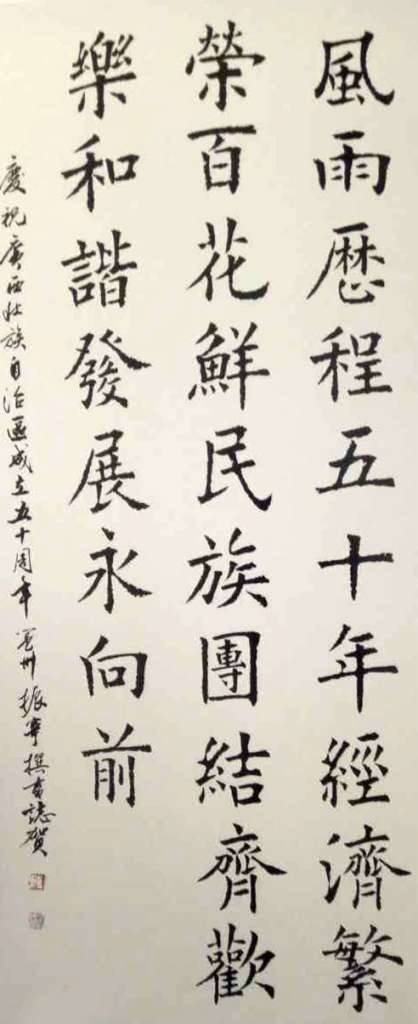 風雨歷程五十年經濟繁
榮百花鮮民族團結齊歡
樂和諧發展永向前
慶祝廣西壯族自治區成立五十周年 州 振寧撰書誌賀